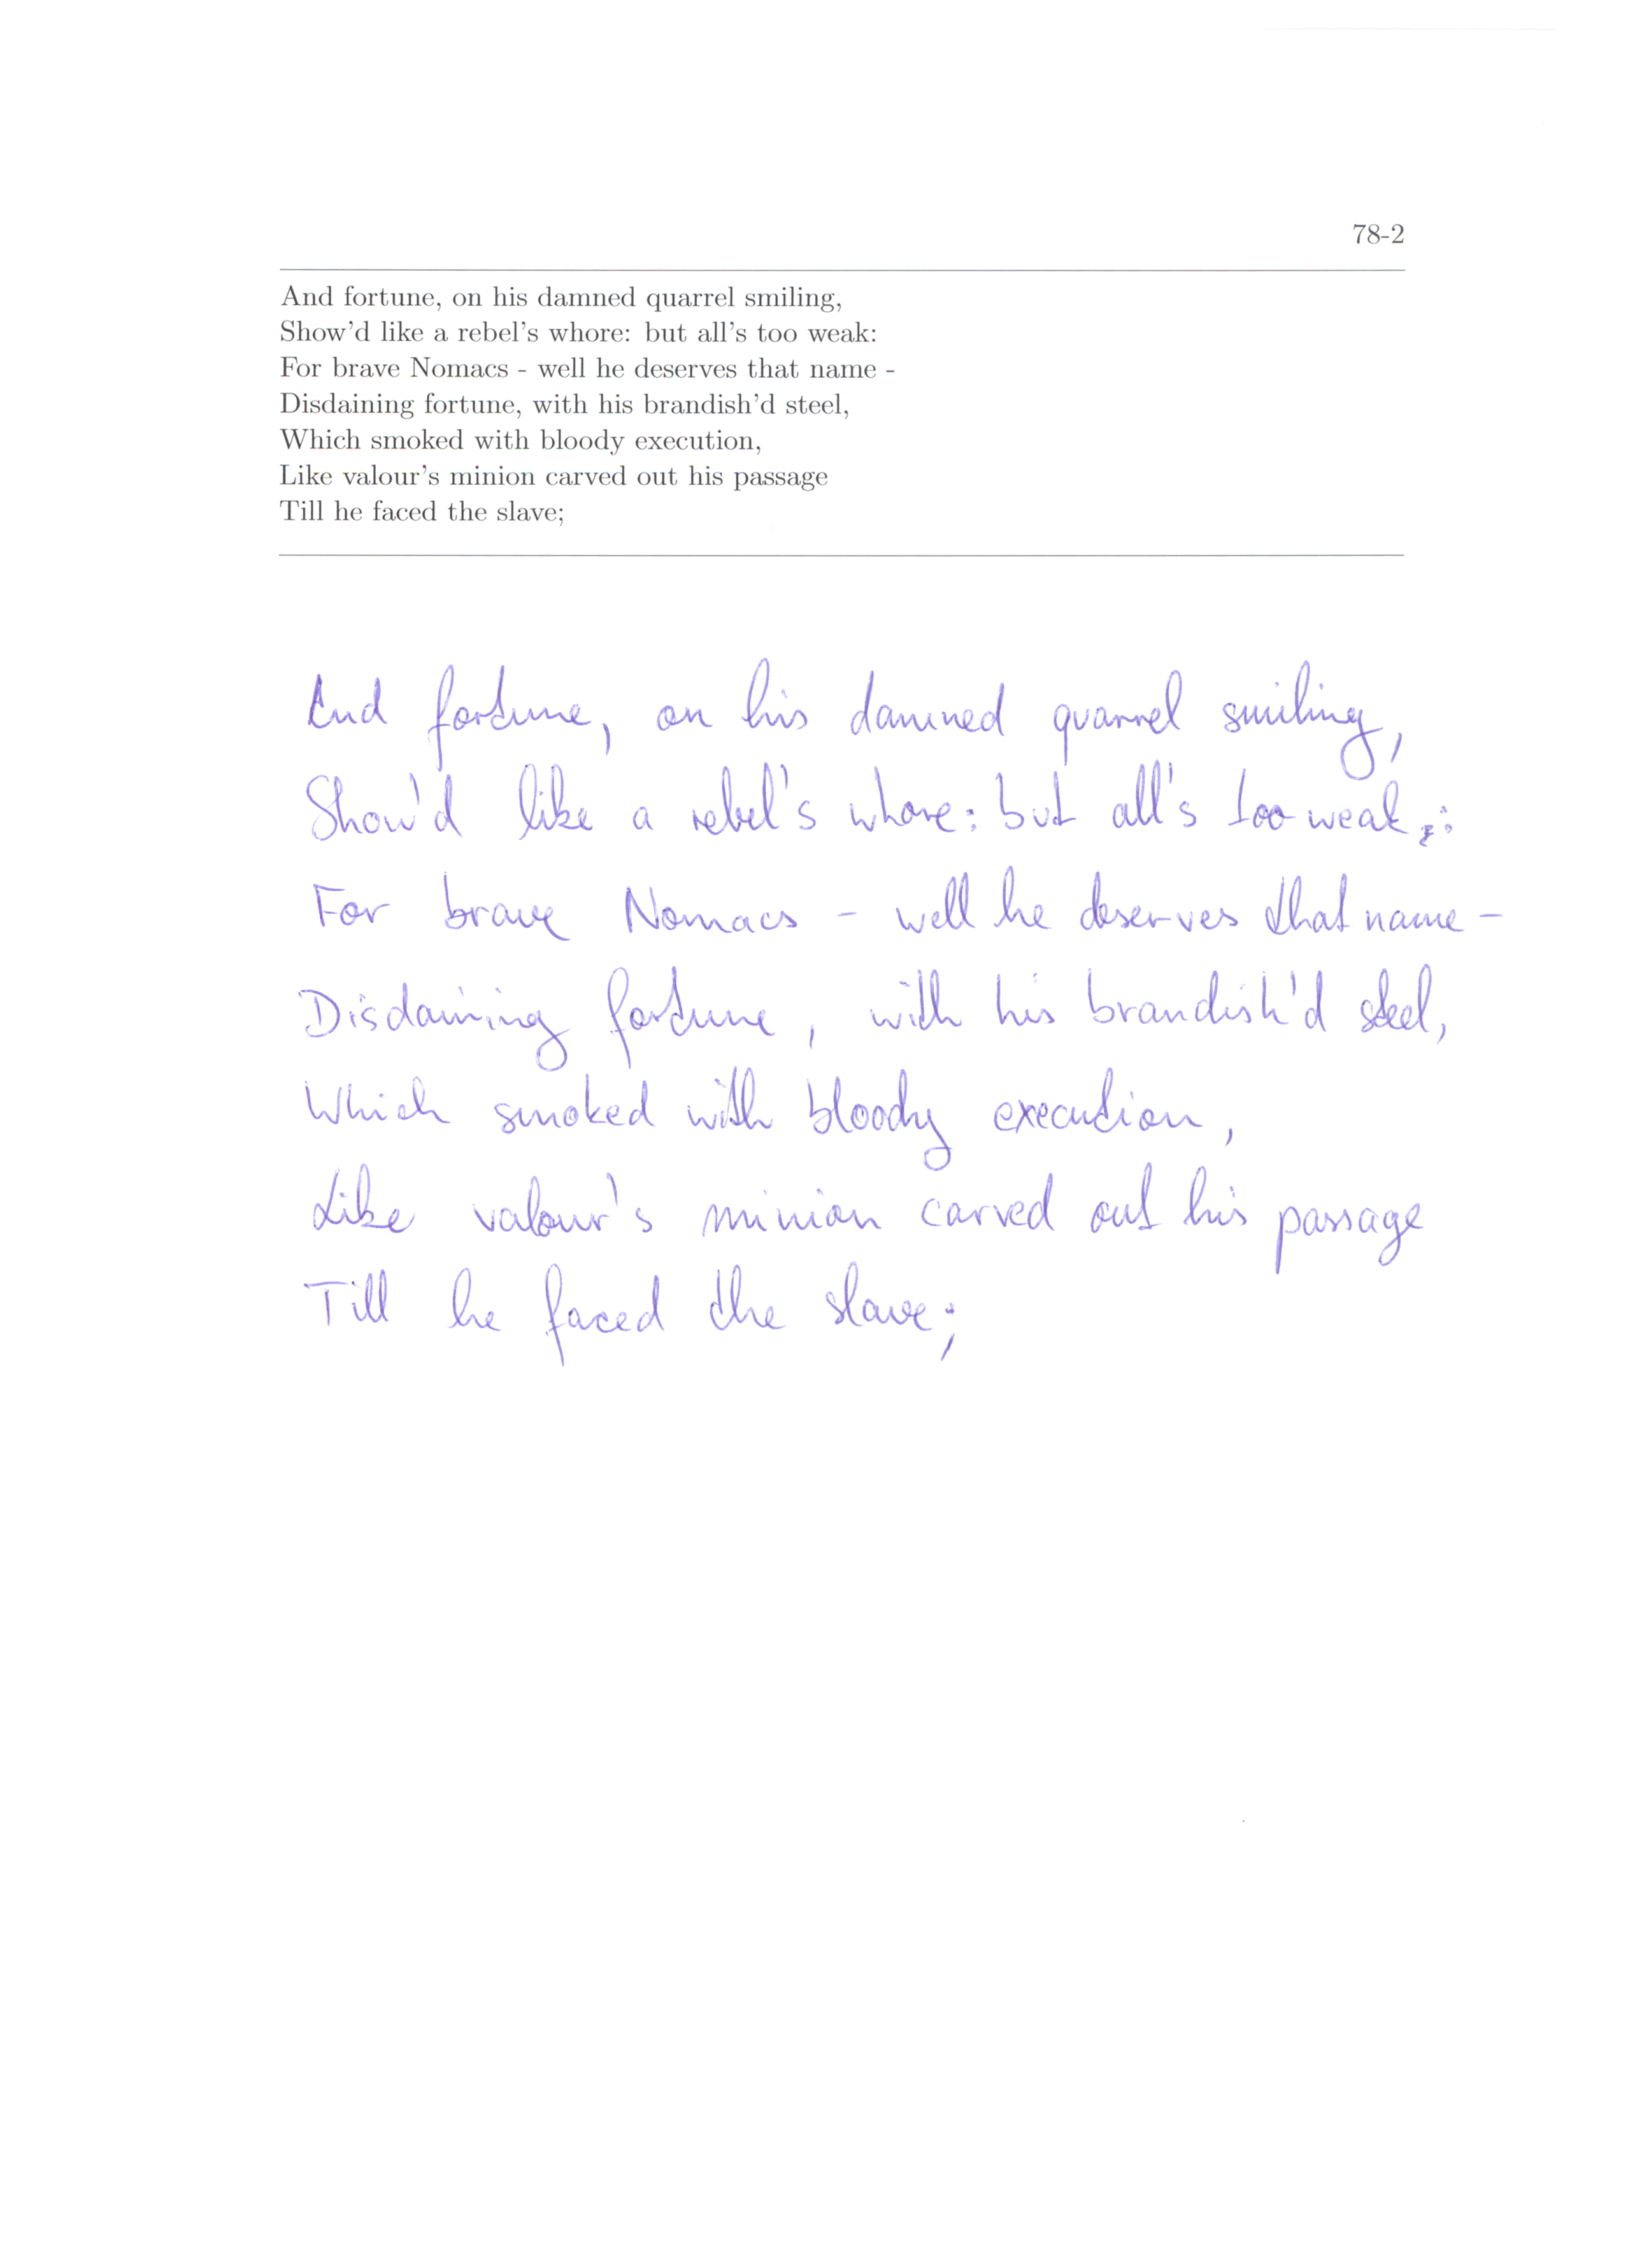 78-2
And fortune, on his damned quarrel smiling,
Show'd like a rebel's whore: but all's too weak:
For brave Nomacs - well he deserves that name -
Disdaining fortune, with his brandish'd steel,
Which smoked with bloody execution,
Like valour's minion carved out his passage
Till he faced the slave;
And fortune, on his damned quarrel smiling,
Show'd like a rebel's whore: but all's too weak:
For brave Nomacs - well he deserves that name -
Disdaining fortune, with his brandish'd steel,
Which smoked with bloody execution,
Like valour's minion carved out his passage
Till he faced the slave;